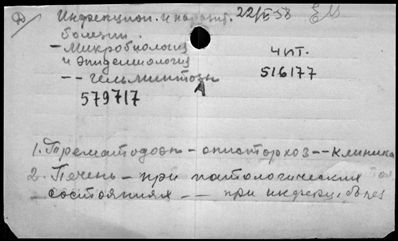 Инфекцион. и паразит. 22/VI 58 ЕМ
болезни.
– Микробиология
и эпидемиология
чит.
516177
-- гельминтозы
А
579717
1. Трематодозы – описторхоз -- клиника
2. Печень – при патологических
состояниях -- при инфекц. бълез